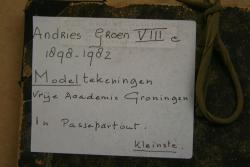 Andries Groen VIII e
1898-1982
Modeltekeningen
Vrije Academie Groningen
In Passepartout.
Kleinste.